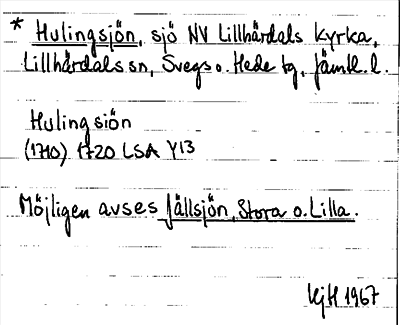 * Hulingsjön, sjö NV Lillhärdals kyrka,
Lillhärdals sn, Svegs o. Hede tg, Jämtl. l.
Hulingsiön
(1710) 1720 LSA Y13
Möjligen avses Fjällsjön, Stora o. Lilla.
KjH 1967